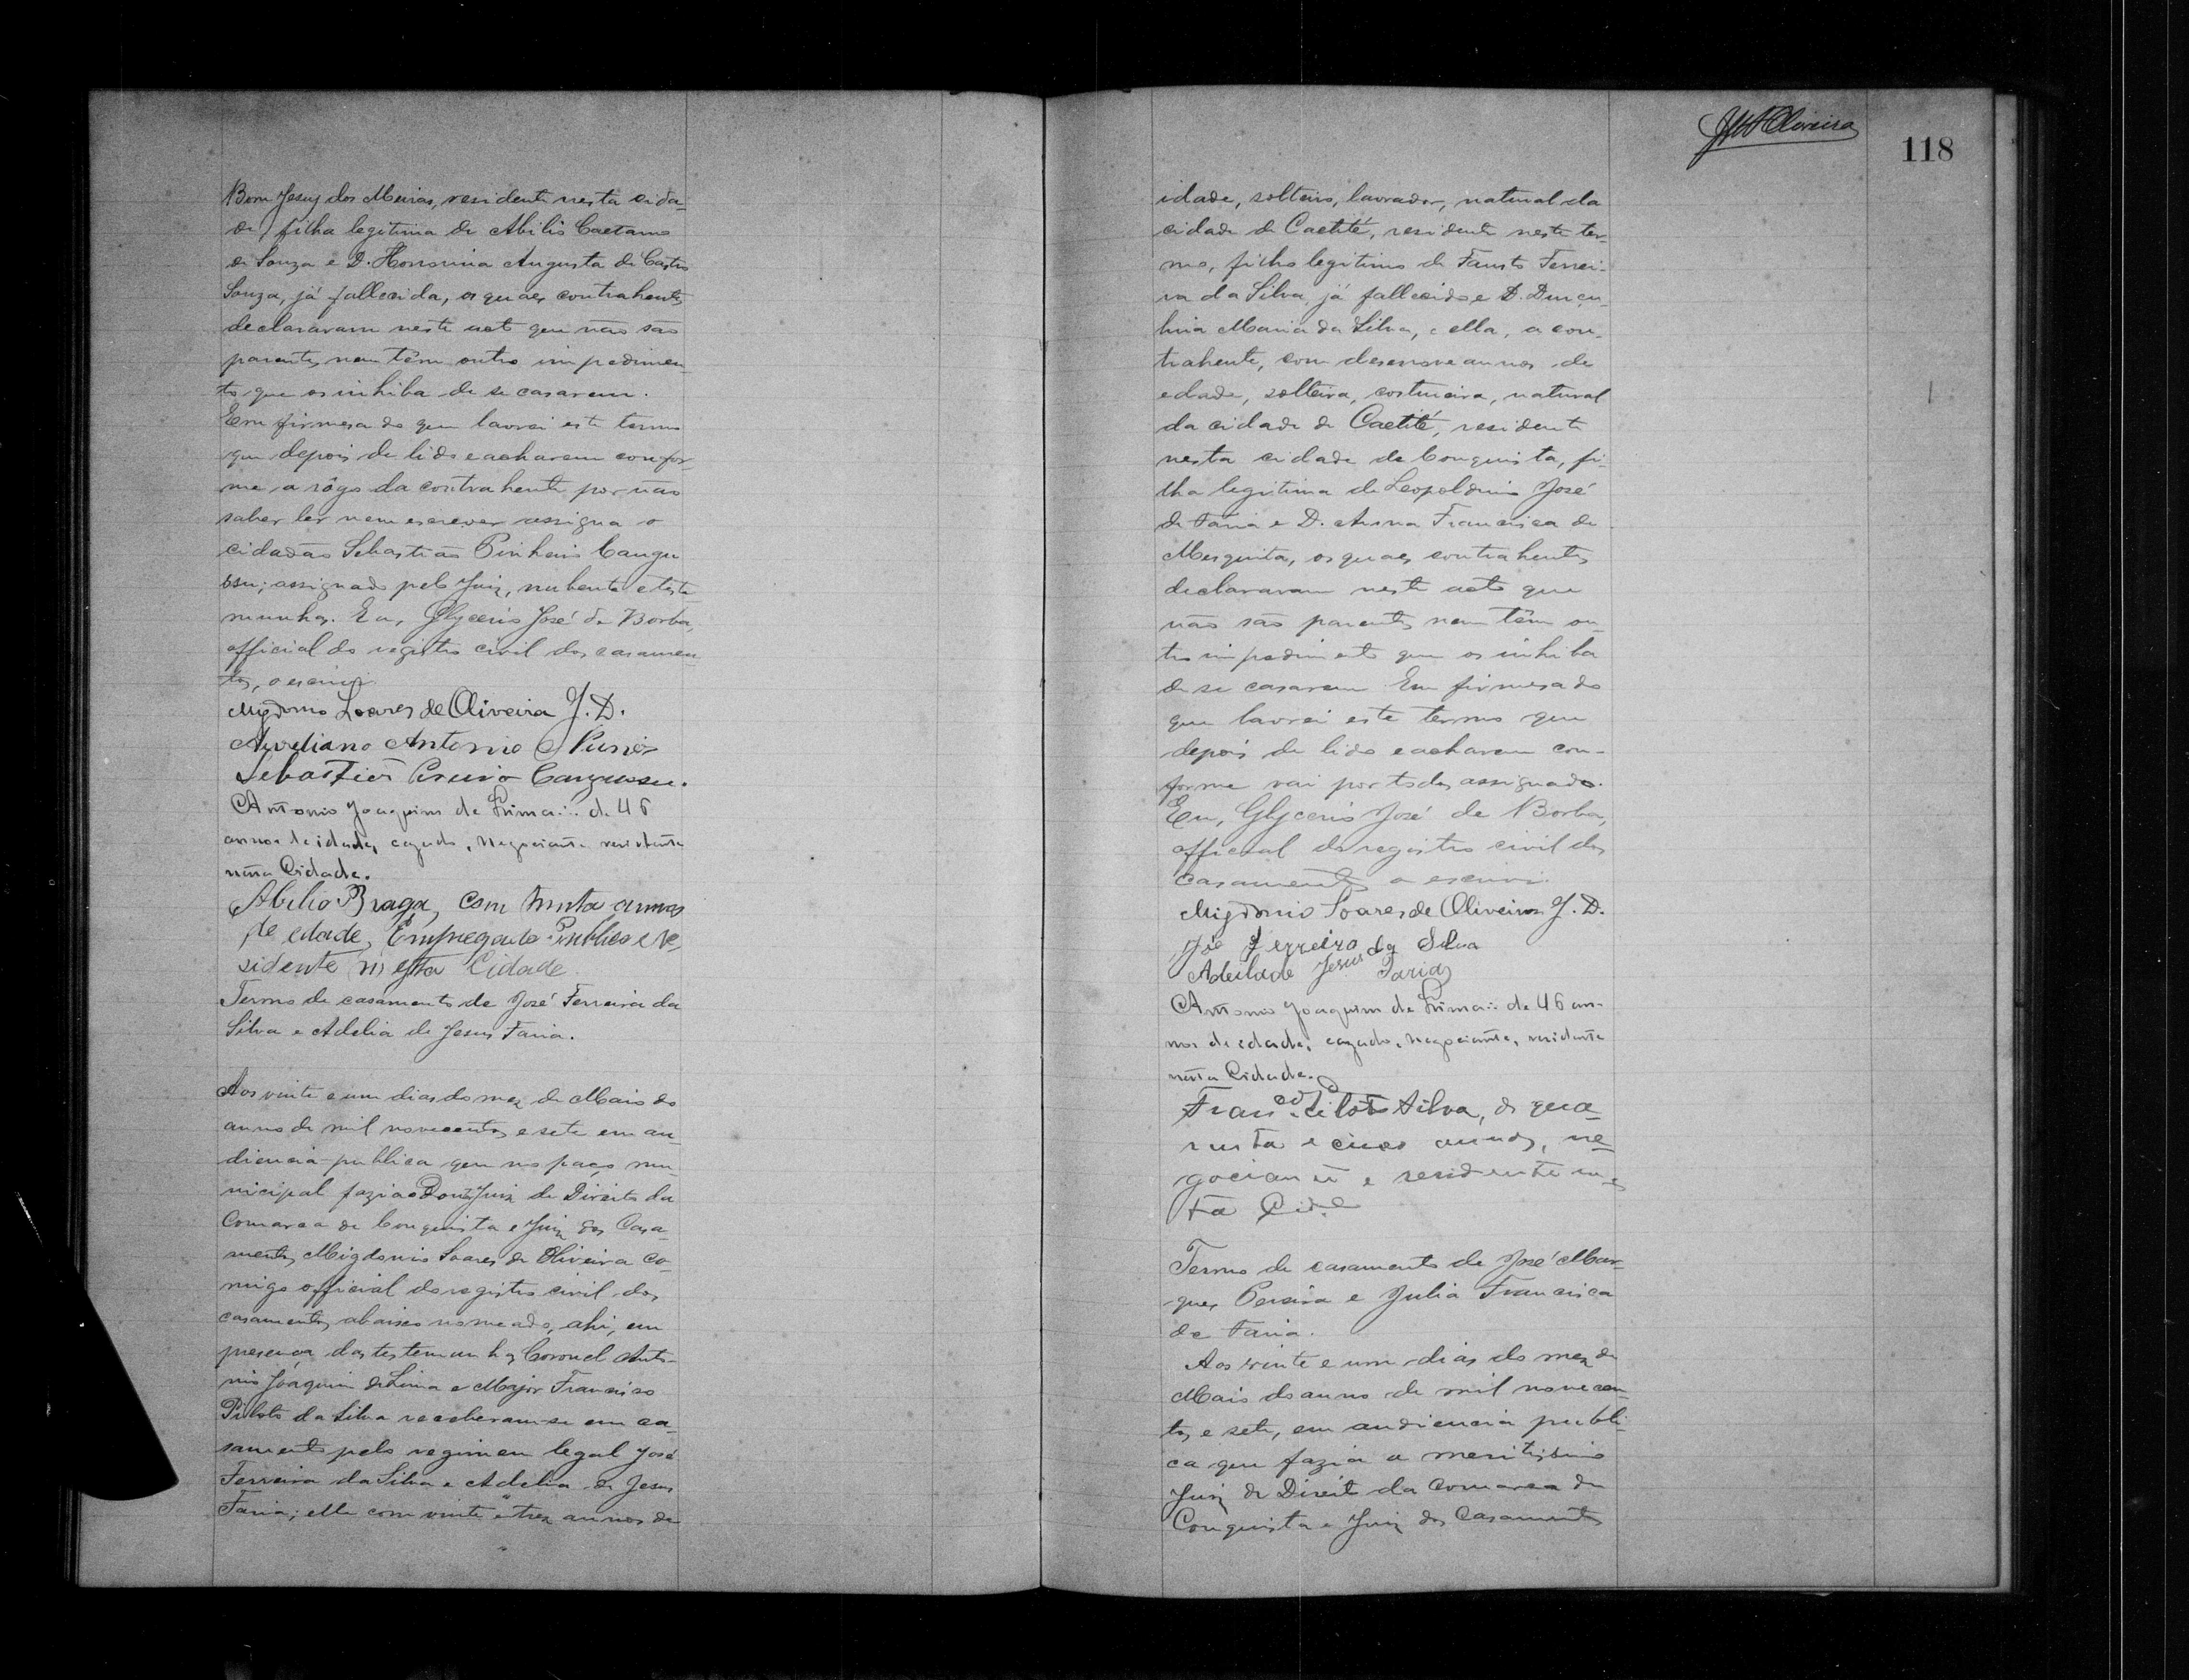 Bom Jesus dos Meiras, residente nesta cida-
de, filha legitima de Abilio Caetano
de Souza e D. Honorina Augusta de Castro
Souza, já fallecida, os quaes contrahentes
declararam neste acto que não são
parentes, nem têm outro impedimen-
to que os inhiba de se casarem.
Em firmesa do que lavrei este termo
que depois de lido e acharem confor-
me, a rôgo da contrahente por não
saber ler nem escrever assigna o
cidadão Sebastião Pinheiro Cangu
ssu; assignado pelo Juiz, nubente e teste-
munhas. Eu, Glycerio José de Borba,
official do registro civil dos casamen-
tos, o escrevi.
Migdonio Soares de Oliveira J. D.
Aureliano Antonio
Sebastião Cangussu.
Antonio Joaquim de Lima: de 46
annos de idade, cazado, negociante residente
nesta Cidade.
Abilio Braga, com trinta annos
de edade, Empregado Publico e re-
sidente n'esta Cidade.
Termo de casamento de José Ferreira da
Silva e Adelia de Jesus Faria.
Aos vinte e um dias do mez de Maio do
anno de mil novecentos e sete em au-
diencia publica que no paço mu-
nicipal fazia o Doutor Juiz de Direito da
Comarca de Conquista e Juiz dos Casa-
mentos, Migdonio Soares de Oliveira co-
migo official do registro civil dos
casamentos abaixo nomeado, ahi, em
presença das testemunhas Coronel Anto-
nio Joaquim de Lima e Major Francisco
Piloto da Silva receberam-se em ca-
samento pelo regimen legal José
Ferreira da Silva e Adelia de Jesus
Faria; elle com vinte e trez annos de
118
idade, solteiro, lavrador, natural da
cidade de Caetité, residente neste ter-
mo, filho legitimo de Fausto Ferrei-
ra da Silva, já fallecido e D.
Maria da Silva, e ella, a con-
trahente, com desenove annos de
edade, solteira, costureira, natural
da cidade de Caetité, residente
nesta cidade de Conquista, fi-
lha legitima de Leopoldino José
de Faria e D. Anna Francisca de
Mesquita, os quaes contrahentes
declararam neste acto que
não são parentes nem têm ou-
tro impedimento que os inhiba
de se casarem. Em firmesa do
que lavrei este termo que
depois de lido e acharem con-
forme vai por todos assignado.
Eu, Glycerio José de Borba,
official do registro civil dos
casamentos o escrevi.
Migdonio Soares de Oliveira J. D.
José Ferreira da Silva
Adeilade Jesus Faria
Antonio Joaquim de Lima: de 46 an-
nos de edade, cazado, negociante, residente
nesta Cidade.
Franco Piloto Silva, de qua-
renta e cinco annos, ne-
gociante e residente nes-
ta Cide
Termo de casamento de José Mar-
ques Pereira e Julia Francisca
de Faria.
Aos vinte e um dias do mez de
Maio do anno de mil novecen-
tos e sete, em audiencia publi-
ca que fazia o meritissimo
Juiz de Direito da Comarca de
Conquista e Juiz dos Casamentos